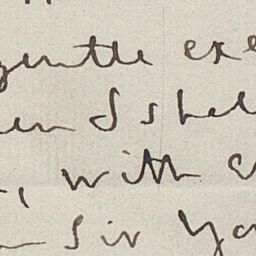 gentle exe
en I shal
, with a
Sir Yo